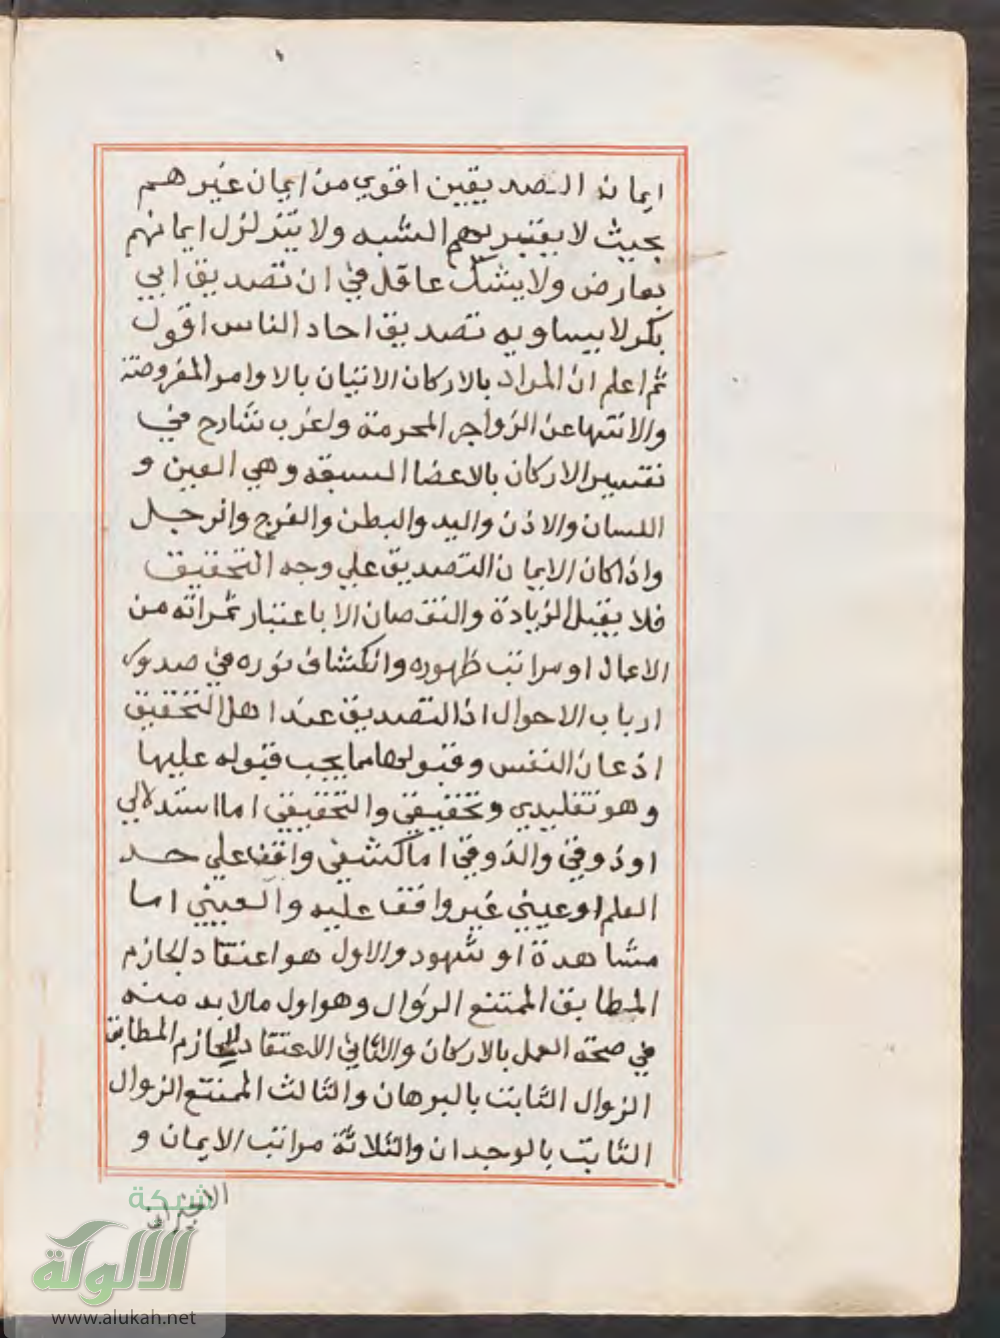 ايمان الصديقين اقوي من ايمان غيرهم
بحيث لا يعتيريهم الشبه ولا يتزلزل ايمانهم
بعارض ولا يشك عاقل في ان تصديق ابي
بكر لا يساويه تصديق احاد الناس اقول
ثم اعلم ان المراد بالاركان الاتيان بالاوامر المفروضة
والانتها عن الزواجر المحرمة واغرب شارح في
تفسير الاركان بالاعضا السبعه وهي العين و
اللسان والاذن واليد والبطن والفرج والرجل
واذا كان الايمان التصديق علي وجه التحقيق
فلا يقبل الزيادة والنقصان الا باعتبار ثمراته من
الاعمال او مراتب ظهوره وانكشاف نوره في صدور
ارباب الاحوال اذ التصديق عند اهل التحقيق
اذعان النفس وقبولها مما يجب قبوله عليها
وهو تقليدي وتحقيقي والتحقيقي اما استدلالي
او ذوقي والذوقي اما كشفي واقف علي حد
العلم او عيني غير واقف عليه والعيني اما
مشاهدة او شهود والاول هو اعتقاد الجازم
المطابق الممتنع الزوال وهو اول ما لا بد منه
في صحته العمل بالاركان والثاني الاعتقاد الجازم المطابق
الزوال الثابت بالبرهان والثالث الممتنع الزوال
الثابت بالوجدان والثلاثة مراتب الايمان و
الاخيران
شبكة
الألوكة
www.alukah.net